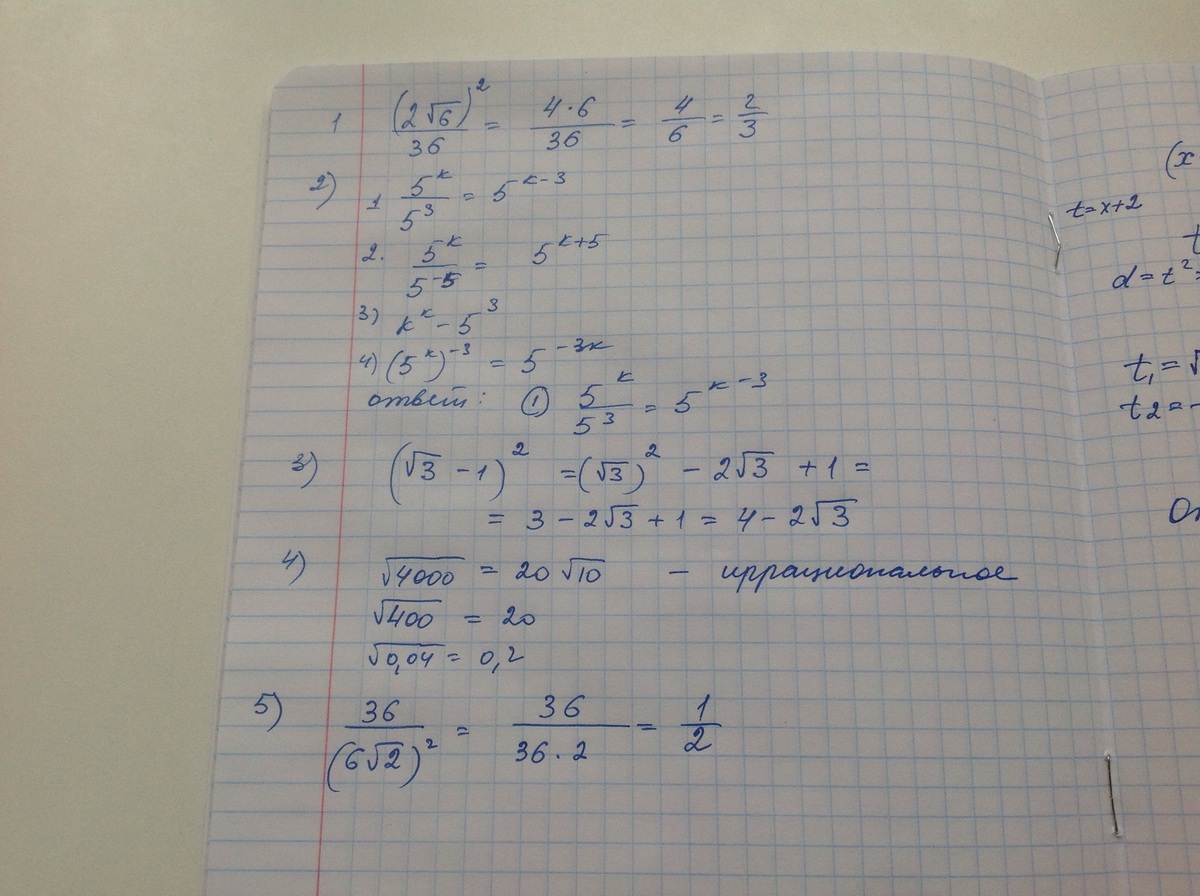 1 (2√6)²/36 = 4·6/36 = 4/6 = 2/3
2) 1 5^к/5³ = 5^к-3
2. 5^к/5^-5 = 5^к+5
3) к^к - 5³
4) (5^к)^-3 = 5^-3к
ответ: ① 5^к/5³ = 5^к-3
3) (√3 - 1)² = (√3)² - 2√3 + 1 =
= 3 - 2√3 + 1 = 4 - 2√3
4) √4000 = 20√10 - иррациональное
√400 = 20
√0,04 = 0,2
5) 36/(6√2)² = 36/36·2 = 1/2
(x
t=x+2
t
d=t²=
t₁=√
t2=-
От